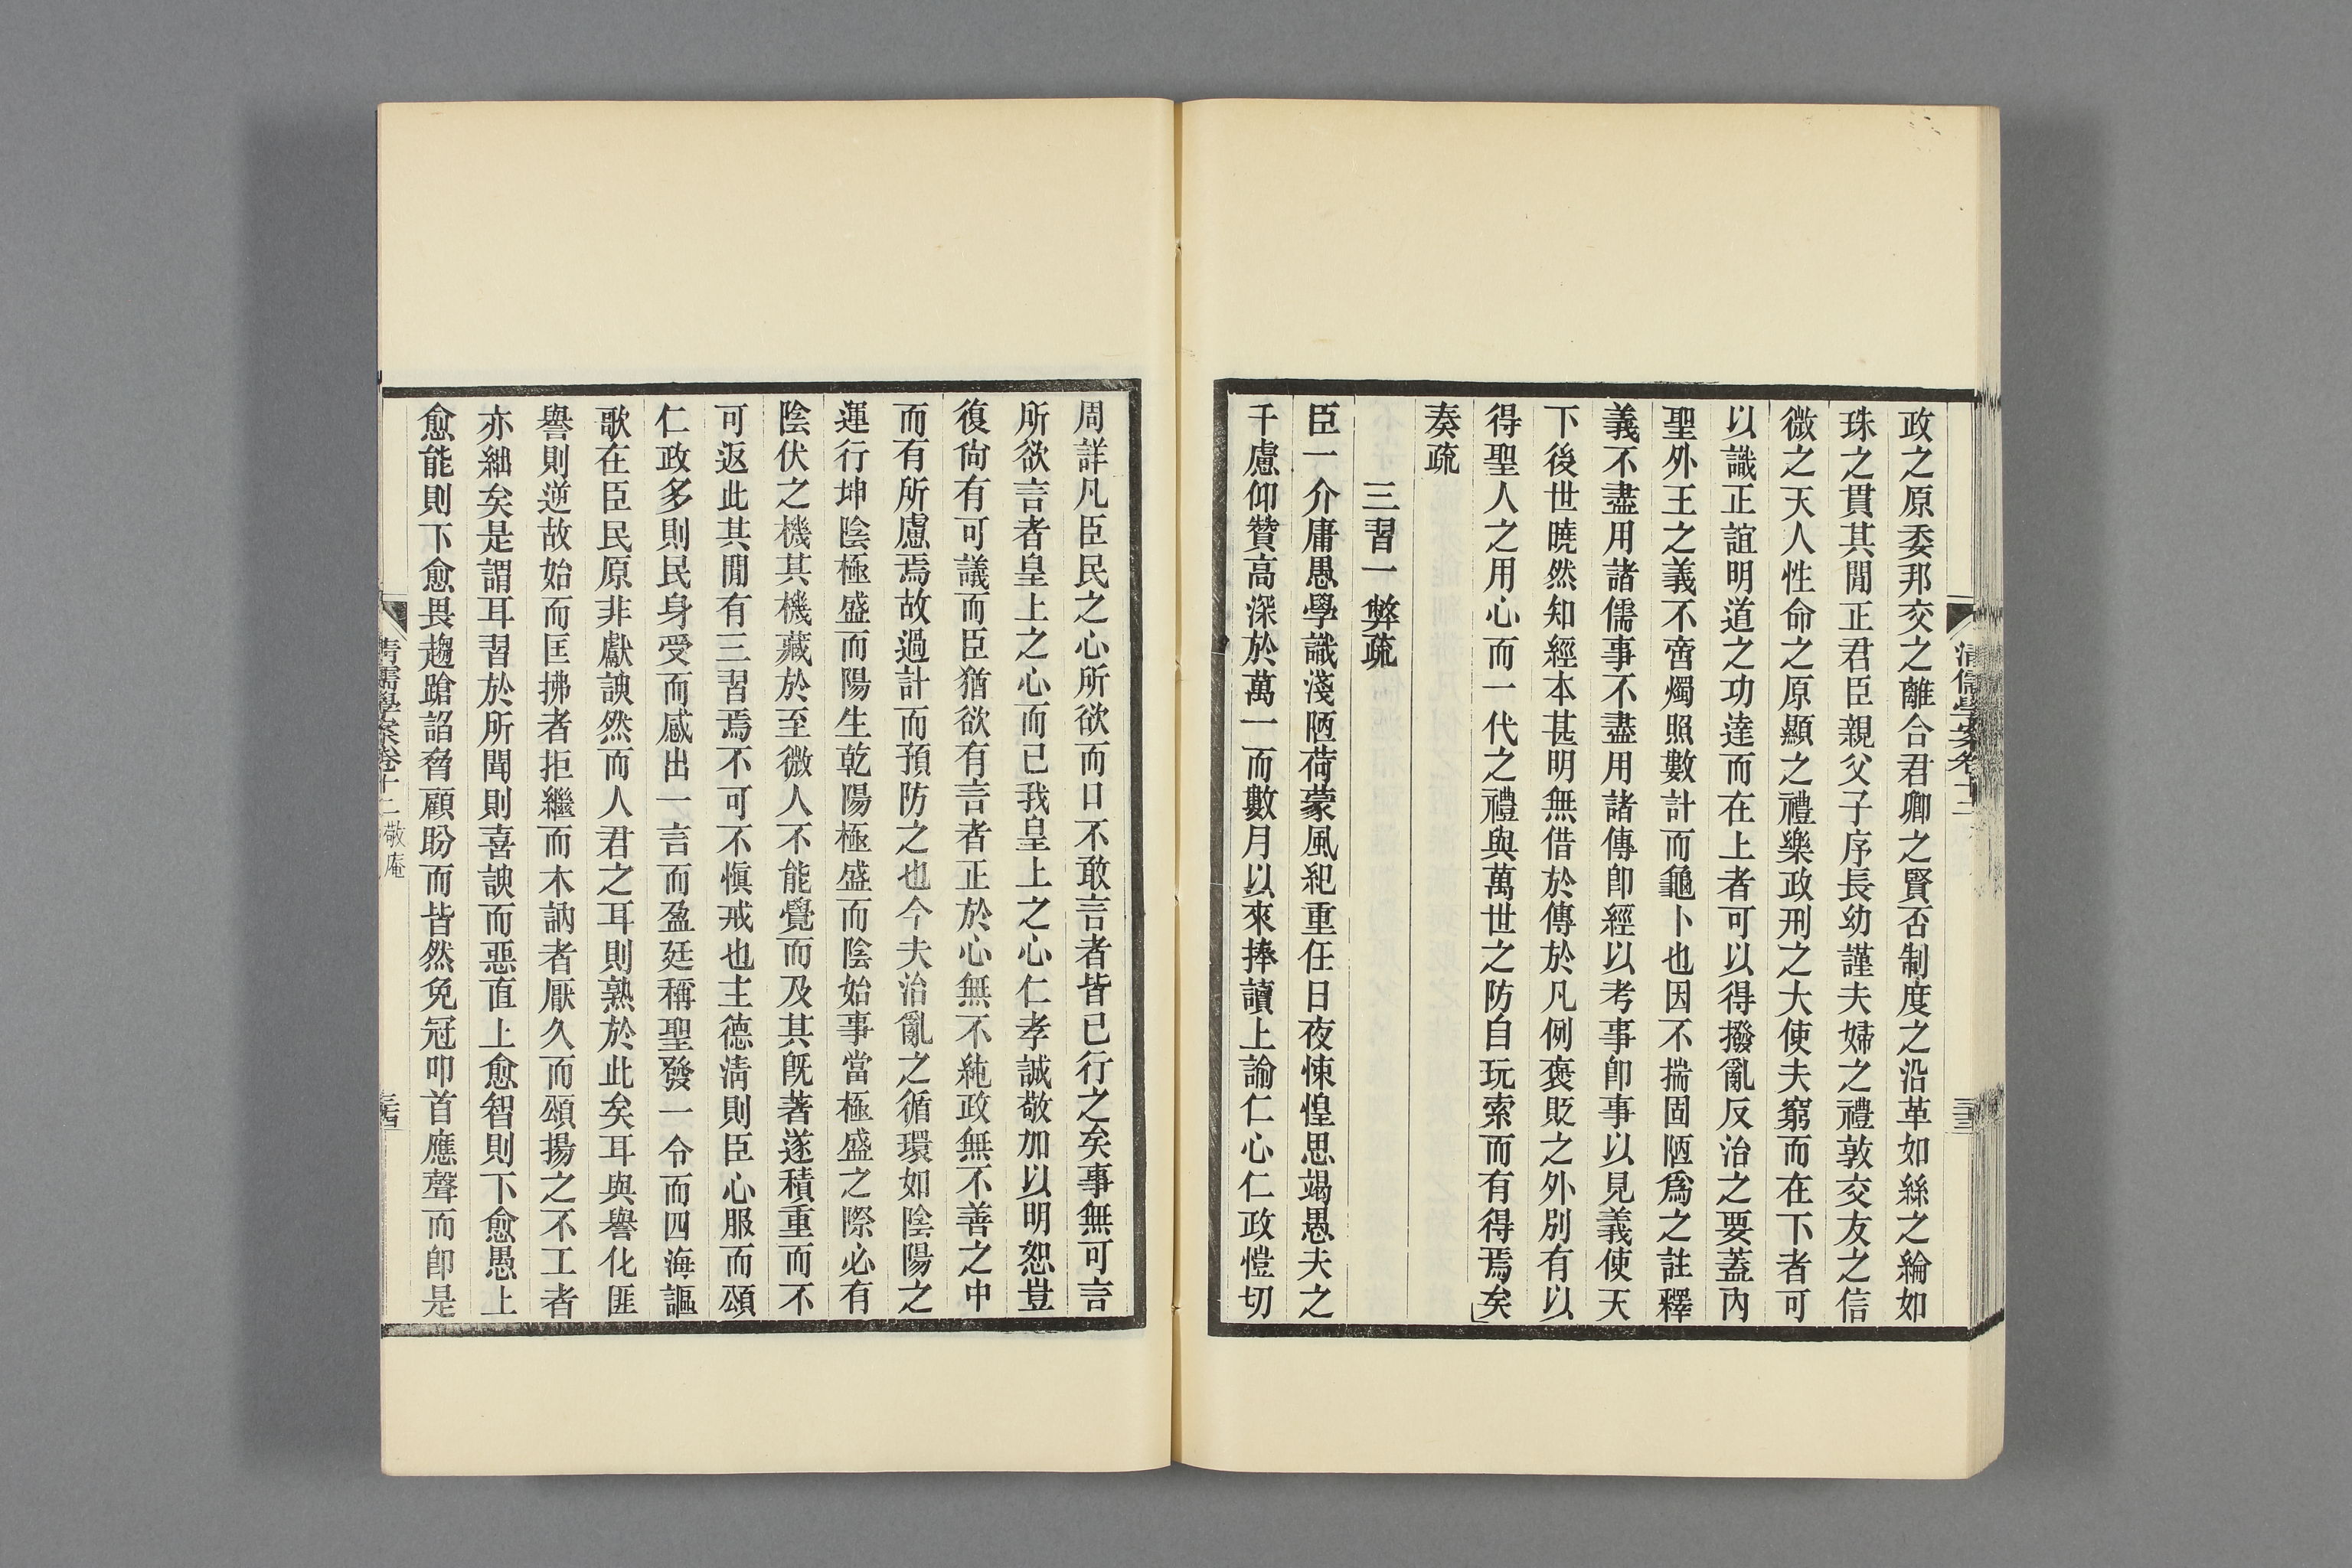 政之原委邦交之離合君卿之賢否制度之沿革如絲之綸如
珠之貫其閒正君臣親父子序長幼謹夫婦之禮敦交友之信
微之天人性命之原顯之禮樂政刑之大使夫窮而在下者可
以識正誼明道之功達而在上者可以得撥亂反治之要蓋內
聖外王之義不啻燭照數計而龜卜也因不揣固陋爲之註釋
義不盡用諸儒事不盡用諸傳卽經以考事卽事以見義使天
下後世曉然知經本甚明無借於傳於凡例褒貶之外別有以
得聖人之用心而一代之禮與萬世之防自玩索而有得焉矣
奏疏
三習一弊疏
臣一介庸愚學識淺陋荷蒙風紀重任日夜悚惶思竭愚夫之
千慮仰贊高深於萬一而數月以來捧讀上諭仁心仁政愷切
周詳凡臣民之心所欲而口不敢言者皆已行之矣事無可言
所欲言者皇上之心而已我皇上之心仁孝誠敬加以明恕豈
復尙有可議而臣猶欲有言者正於心無不純政無不善之中
而有所慮焉故過計而預防之也今夫治亂之循環如陰陽之
運行坤陰極盛而陽生乾陽極盛而陰始事當極盛之際必有
陰伏之機其機藏於至微人不能覺而及其旣著遂積重而不
可返此其閒有三習焉不可不愼戒也主德淸則臣心服而頌
仁政多則民身受而感出一言而盈廷稱聖發一令而四海謳
歌在臣民原非獻諛然而人君之耳則熟於此矣耳與譽化匪
譽則逆故始而匡拂者拒繼而木訥者厭久而頌揚之不工者
亦絀矣是謂耳習於所聞則喜諛而惡直上愈智則下愈愚上
愈能則下愈畏趨蹌諂脅顧盼而皆然免冠叩首應聲而卽是
清儒學案卷十二 敬庵